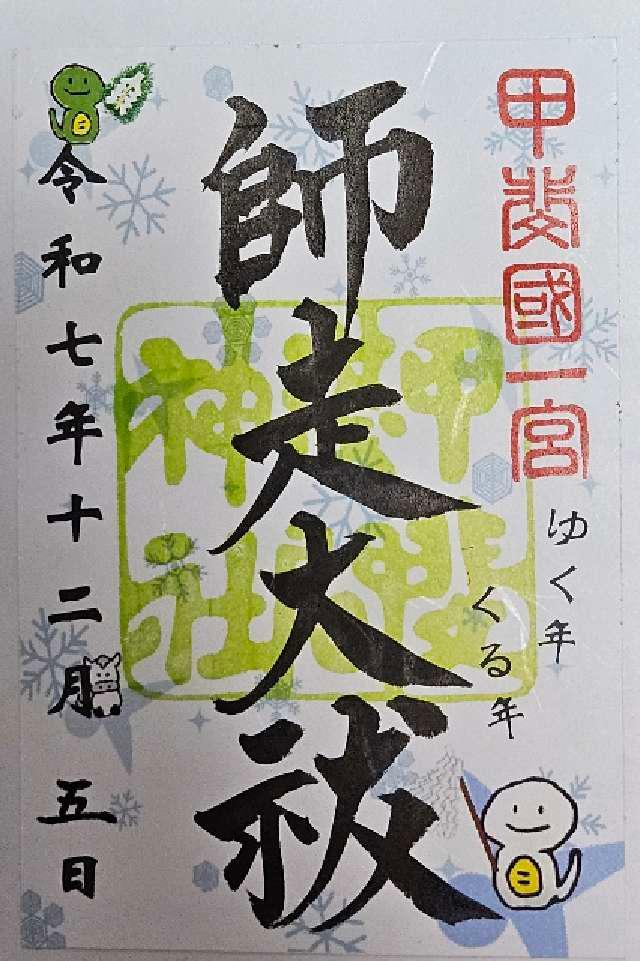 甲斐國一宮
ゆく年
くる年
師走大祓
神社
令和七年十二月五日